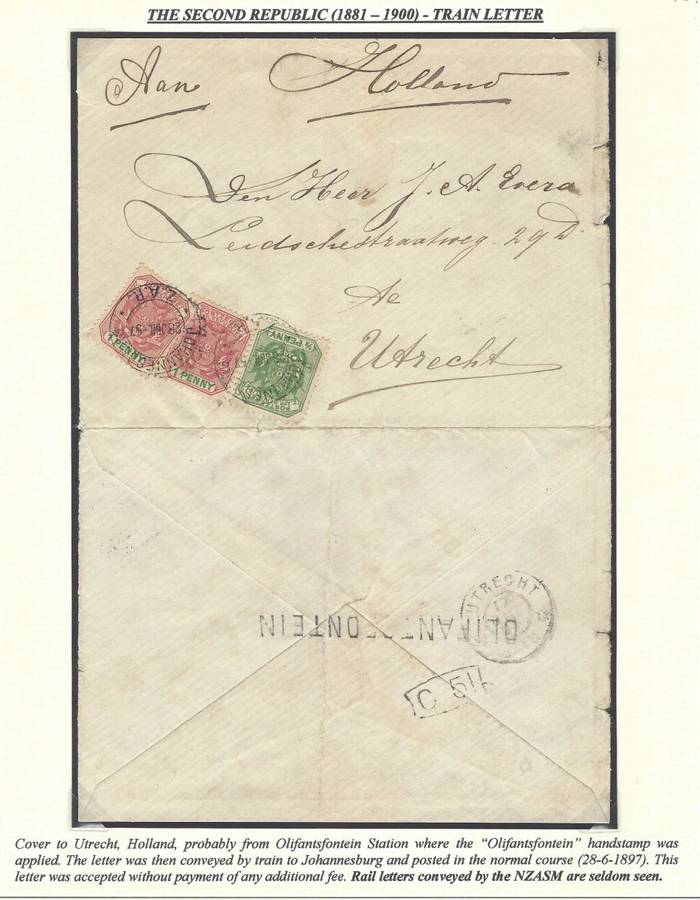 THE SECOND REPUBLIC (1881 – 1900) - TRAIN LETTER
Aan Holland
Den Heer J. A. Evera
Leidschestraatweg. 29 D.
te
Utrecht
Z.A.R.
28 JUN. 97
JOHANNES
1 PENNY
1 PENNY
½ PENNY
UTRECHT
17
OLIFANTSFONTEIN
C 51
Cover to Utrecht, Holland, probably from Olifantsfontein Station where the “Olifantsfontein” handstamp was
applied. The letter was then conveyed by train to Johannesburg and posted in the normal course (28-6-1897). This
letter was accepted without payment of any additional fee. Rail letters conveyed by the NZASM are seldom seen.